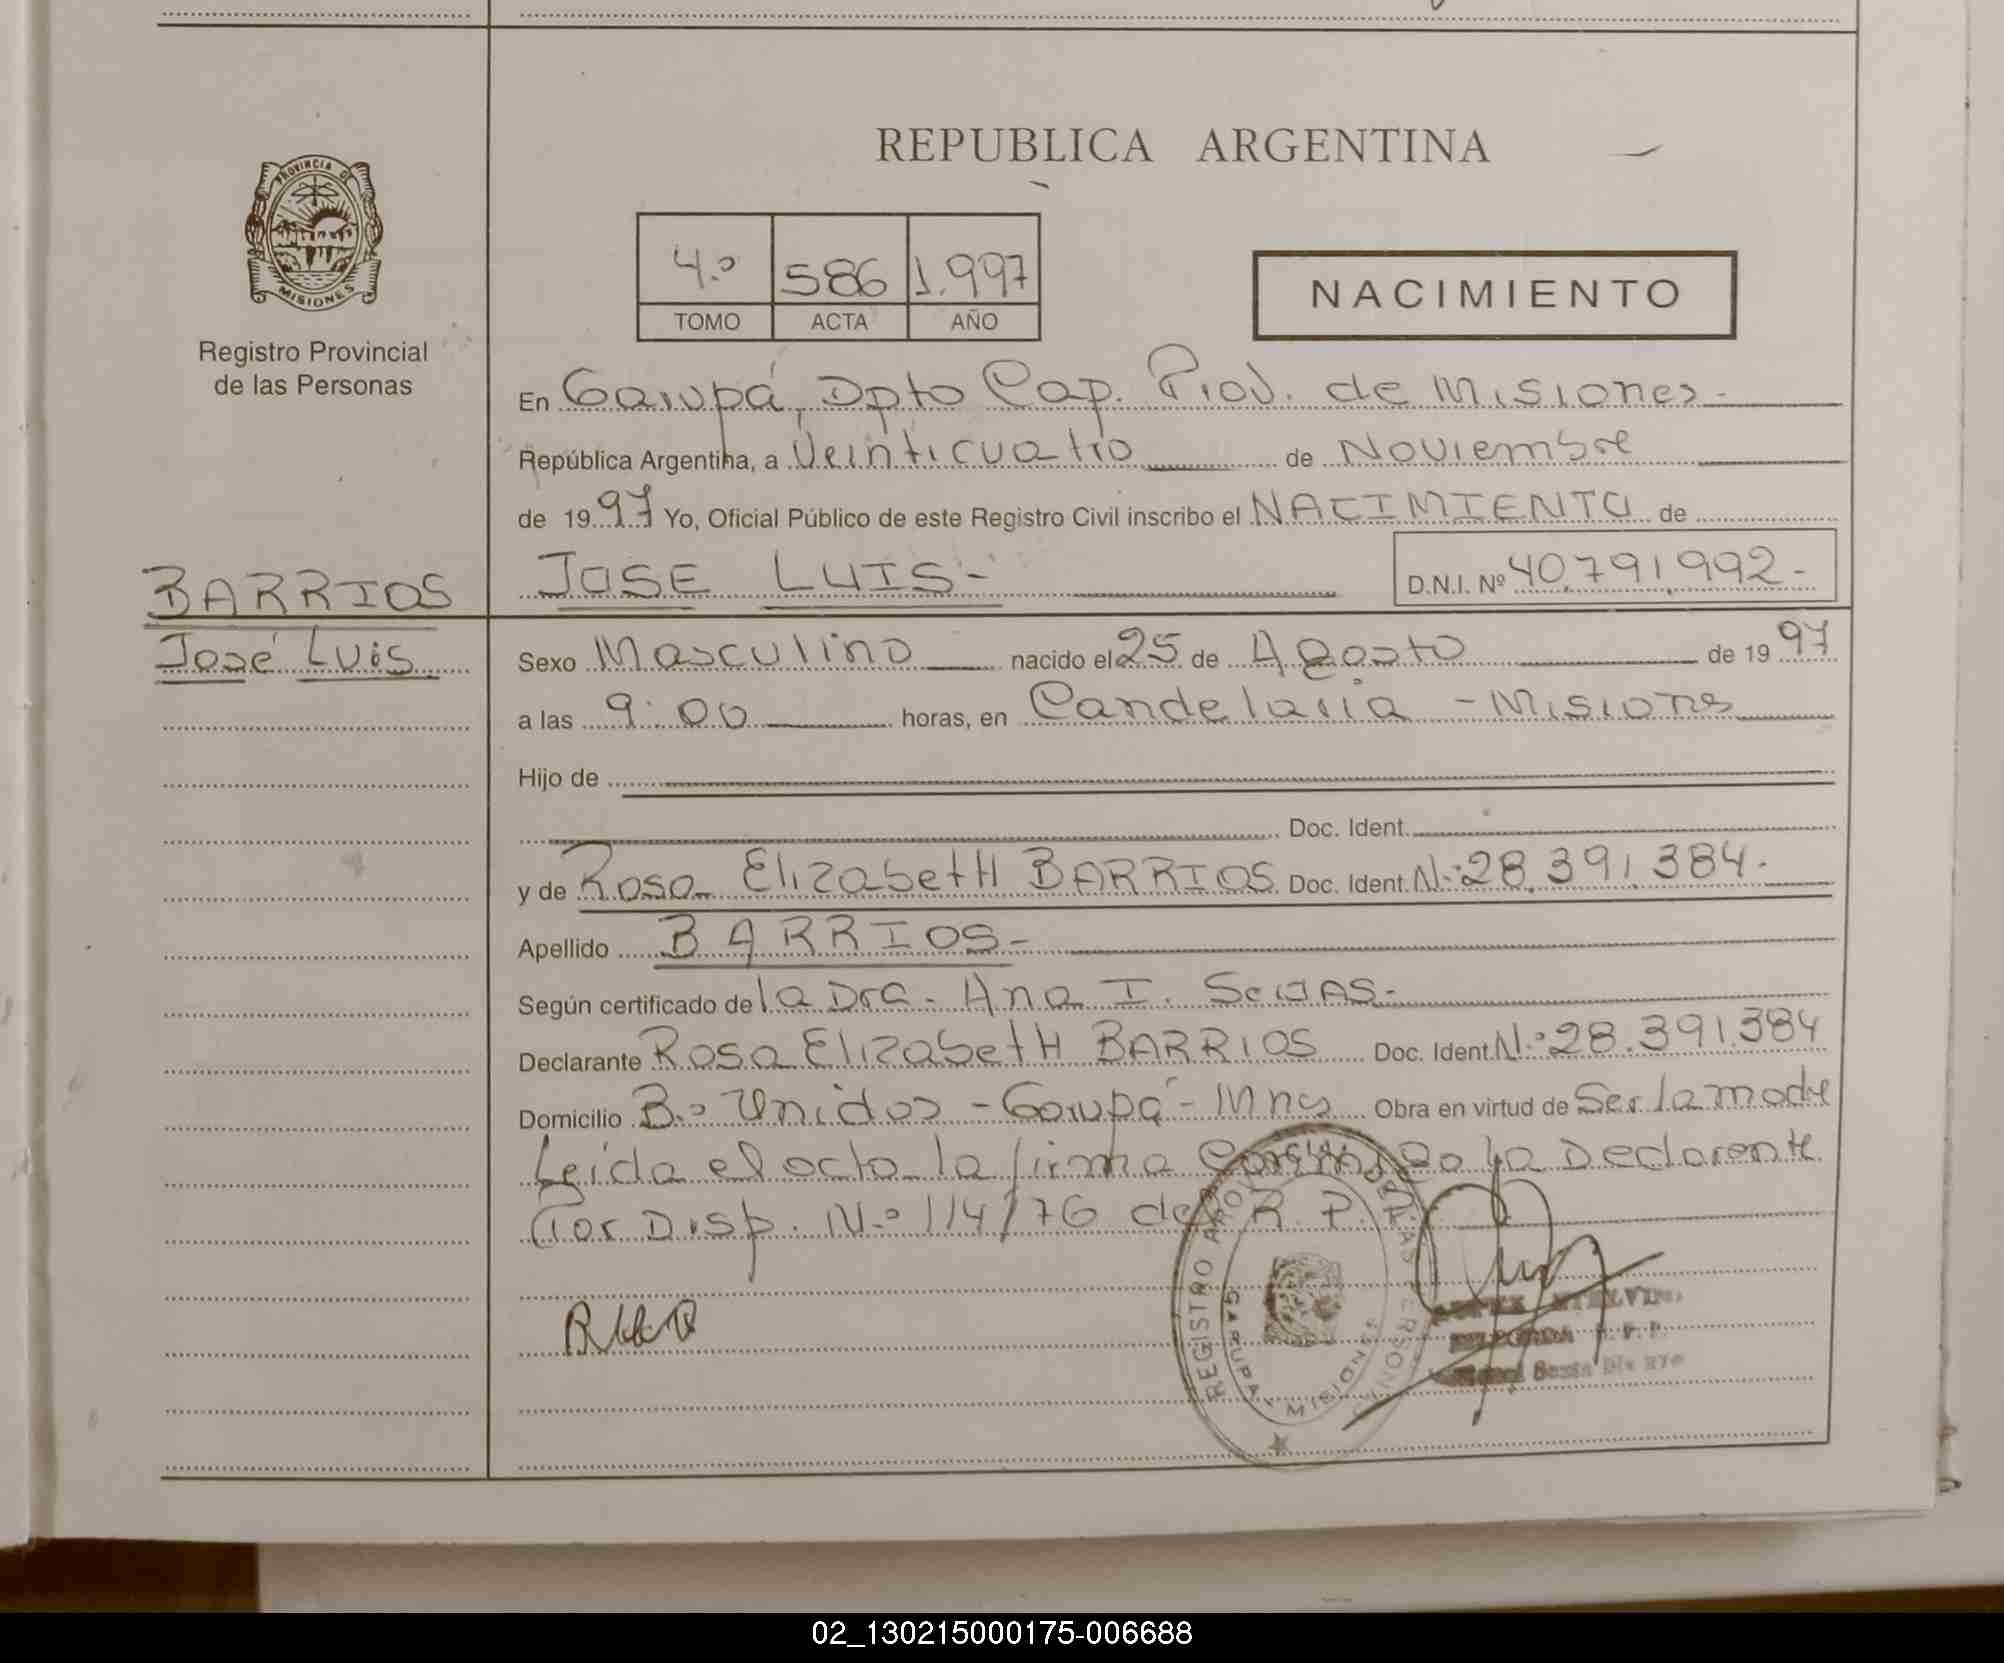 REPUBLICA ARGENTINA
PROVINCIA D
MISIONES
Registro Provincial
de las Personas
4.º 586 1.997
TOMO ACTA AÑO
NACIMIENTO
En Garupá, Dpto Cap. Prov. de Misiones -
República Argentina, a Veinticuatro de Noviembre
de 1997 Yo, Oficial Público de este Registro Civil inscribo el NACIMIENTO de
BARRIOS
José Luis
JOSE LUIS -
D.N.I. Nº 40.791.992 -
Sexo Masculino nacido el 25 de Agosto de 1997
a las 9:00 horas, en Candelaria - Misiones
Hijo de
Doc. Ident.
y de Rosa Elizabeth BARRIOS Doc. Ident. N.º 28.391.384.-
Apellido BARRIOS -
Según certificado de la Dra. Ana I.
Declarante Rosa Elizabeth BARRIOS Doc. Ident. N.º 28.391.384
Domicilio B.º Unidos - Garupá - Mnes Obra en virtud de Ser la madre
Leída el acta la firma Conmigo la Declarante
Por Disp. N.º 114/76 del R.P.P.
REGISTRO PROVINCIAL DE LAS PERSONAS
GARUPA MISIONES
02_130215000175-006688